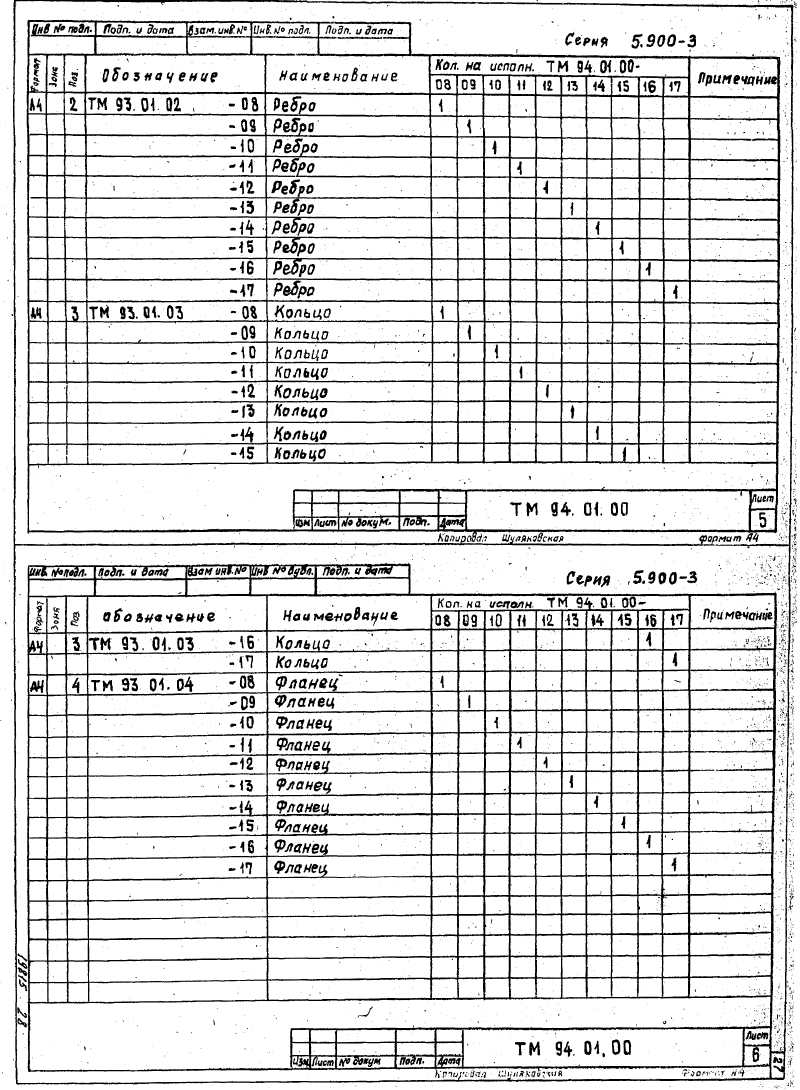 Инв № подл. Подп. и дата Взам. инв. № Инв. № подл. Подп. и дата
Серия 5.900-3
Формат Зона Поз. Обозначение Наименование Кол. на исполн. ТМ 94.01.00- Примечание
08 09 10 11 12 13 14 15 16 17
А4 2 ТМ 93.01.02 -08 Ребро 1
-09 Ребро 1
-10 Ребро 1
-11 Ребро 1
-12 Ребро 1
-13 Ребро 1
-14 Ребро 1
-15 Ребро 1
-16 Ребро 1
-17 Ребро 1
А4 3 ТМ 93.01.03 -08 Кольцо 1
-09 Кольцо 1
-10 Кольцо 1
-11 Кольцо 1
-12 Кольцо 1
-13 Кольцо 1
-14 Кольцо 1
-15 Кольцо 1
Изм Лист № докум. Подп. Дата
ТМ 94.01.00
Лист
5
Копировал Шуляковская формат А4
Инв. № подл. Подп. и дата Взам инв. № Инв № дубл. Подп. и дата
Серия 5.900-3
Формат Зона Поз. Обозначение Наименование Кол. на исполн. ТМ 94.01.00- Примечание
08 09 10 11 12 13 14 15 16 17
А4 3 ТМ 93.01.03 -16 Кольцо 1
-17 Кольцо 1
А4 4 ТМ 93 01.04 -08 Фланец 1
-09 Фланец 1
-10 Фланец 1
-11 Фланец 1
-12 Фланец 1
-13 Фланец 1
-14 Фланец 1
-15 Фланец 1
-16 Фланец 1
-17 Фланец 1
19815 28
Изм Лист № докум Подп. Дата
ТМ 94.01.00
Лист
6
27
Копировал Шуляковская Формат А4